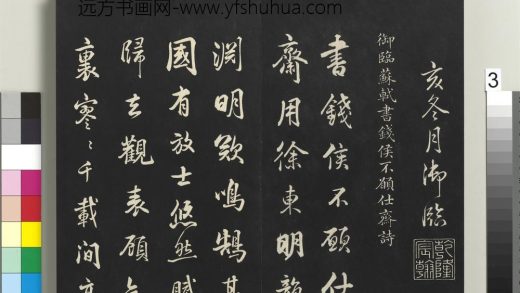 远方书画网-www.yfshuhua.com
3
亥冬月御臨
乾隆宸翰
御臨蘇軾書錢侯不願仕齋詩
書錢侯不願仕
齋用徐東明韻
淵明歟鳴鵠其
國有放士悠然賦
歸去觀表顧
裏寥〻千載間